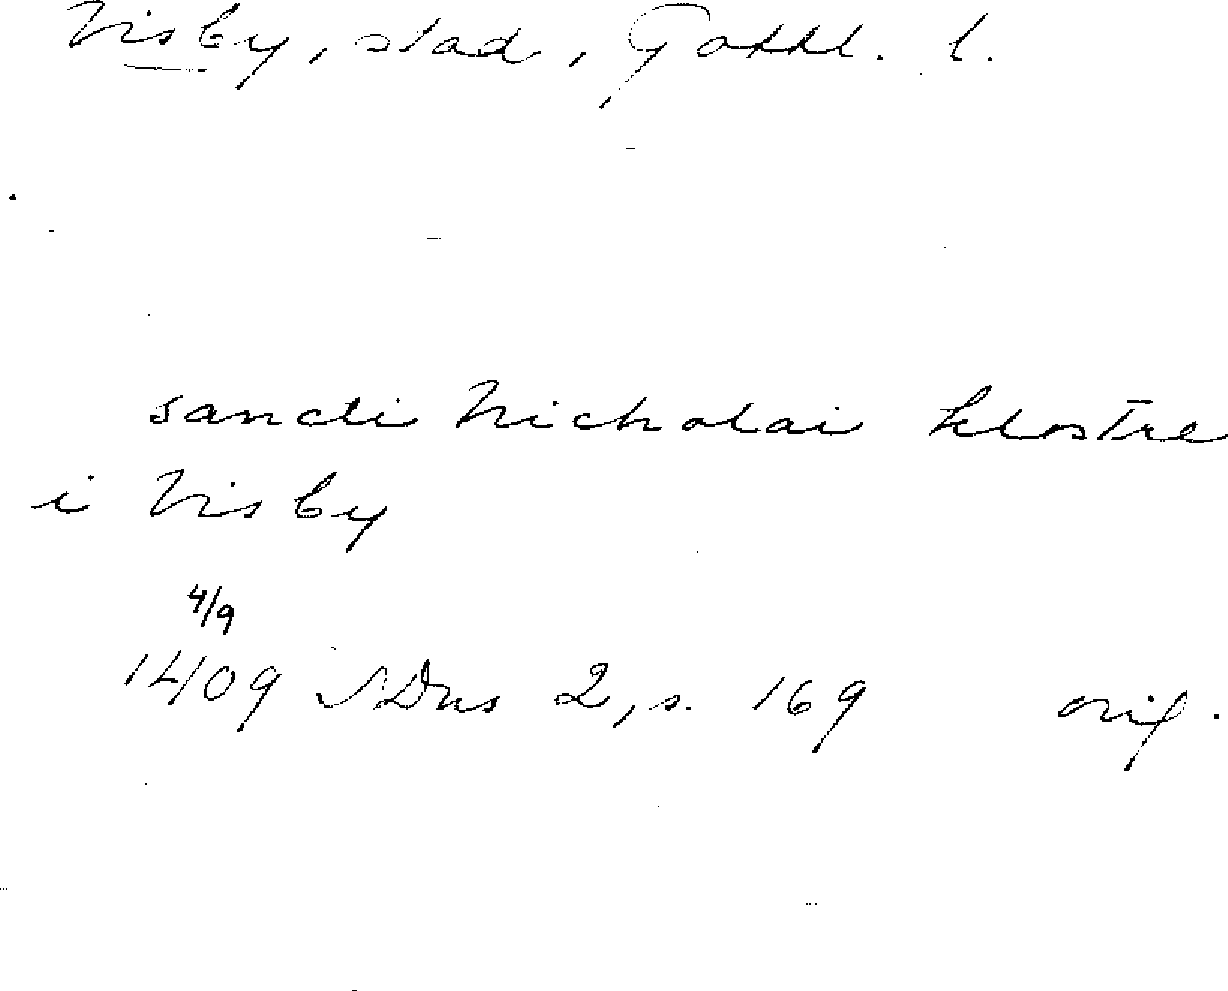 Visby, stad, Gottl. l.
sancti Nicholai klostre
i Visby
4/9
1409 SDns 2, s. 169 orig.